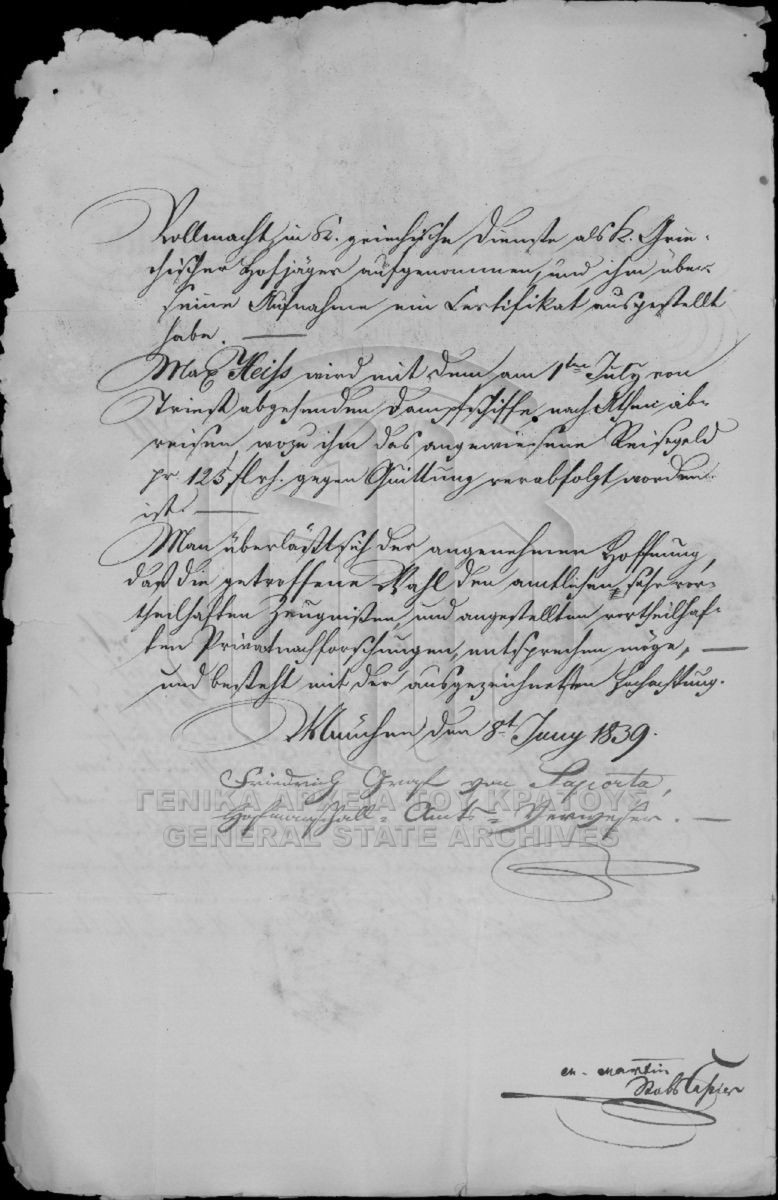 Vollmacht, in K. griechische Dienste als k. Grie-
chischer Hofjäger aufgenommen, und ihm über
seine Aufnahme ein Certifikat ausgestellt
habe. —
Max Heiss wird mit dem am 1ten July von
Triest abgehenden Dampfschiffe nach Athen ab-
reisen, wozu ihm das angewiesene Reisegeld
pr 125 fl rh. gegen Quittung verabfolgt worden
ist. —
Man überläßt sich der angenehmen Hoffnung,
daß die getroffene Wahl den amtlichen sehr vor-
theilhaften Zeugnißen, und angestellten vortheilhaf-
ten Privatnachforschungen, entsprechen möge, —
und besteht mit der ausgezeichnetsten Hochachtung.
München den 8t Juny 1839.
Friedrich Graf von Saporta,
Hofmarschall-Amts-Verweser. —
ΓΕΝΙΚΑ ΑΡΧΕΙΑ ΤΟΥ ΚΡΑΤΟΥΣ
GENERAL STATE ARCHIVES
M. Martin
Stabs Cassier